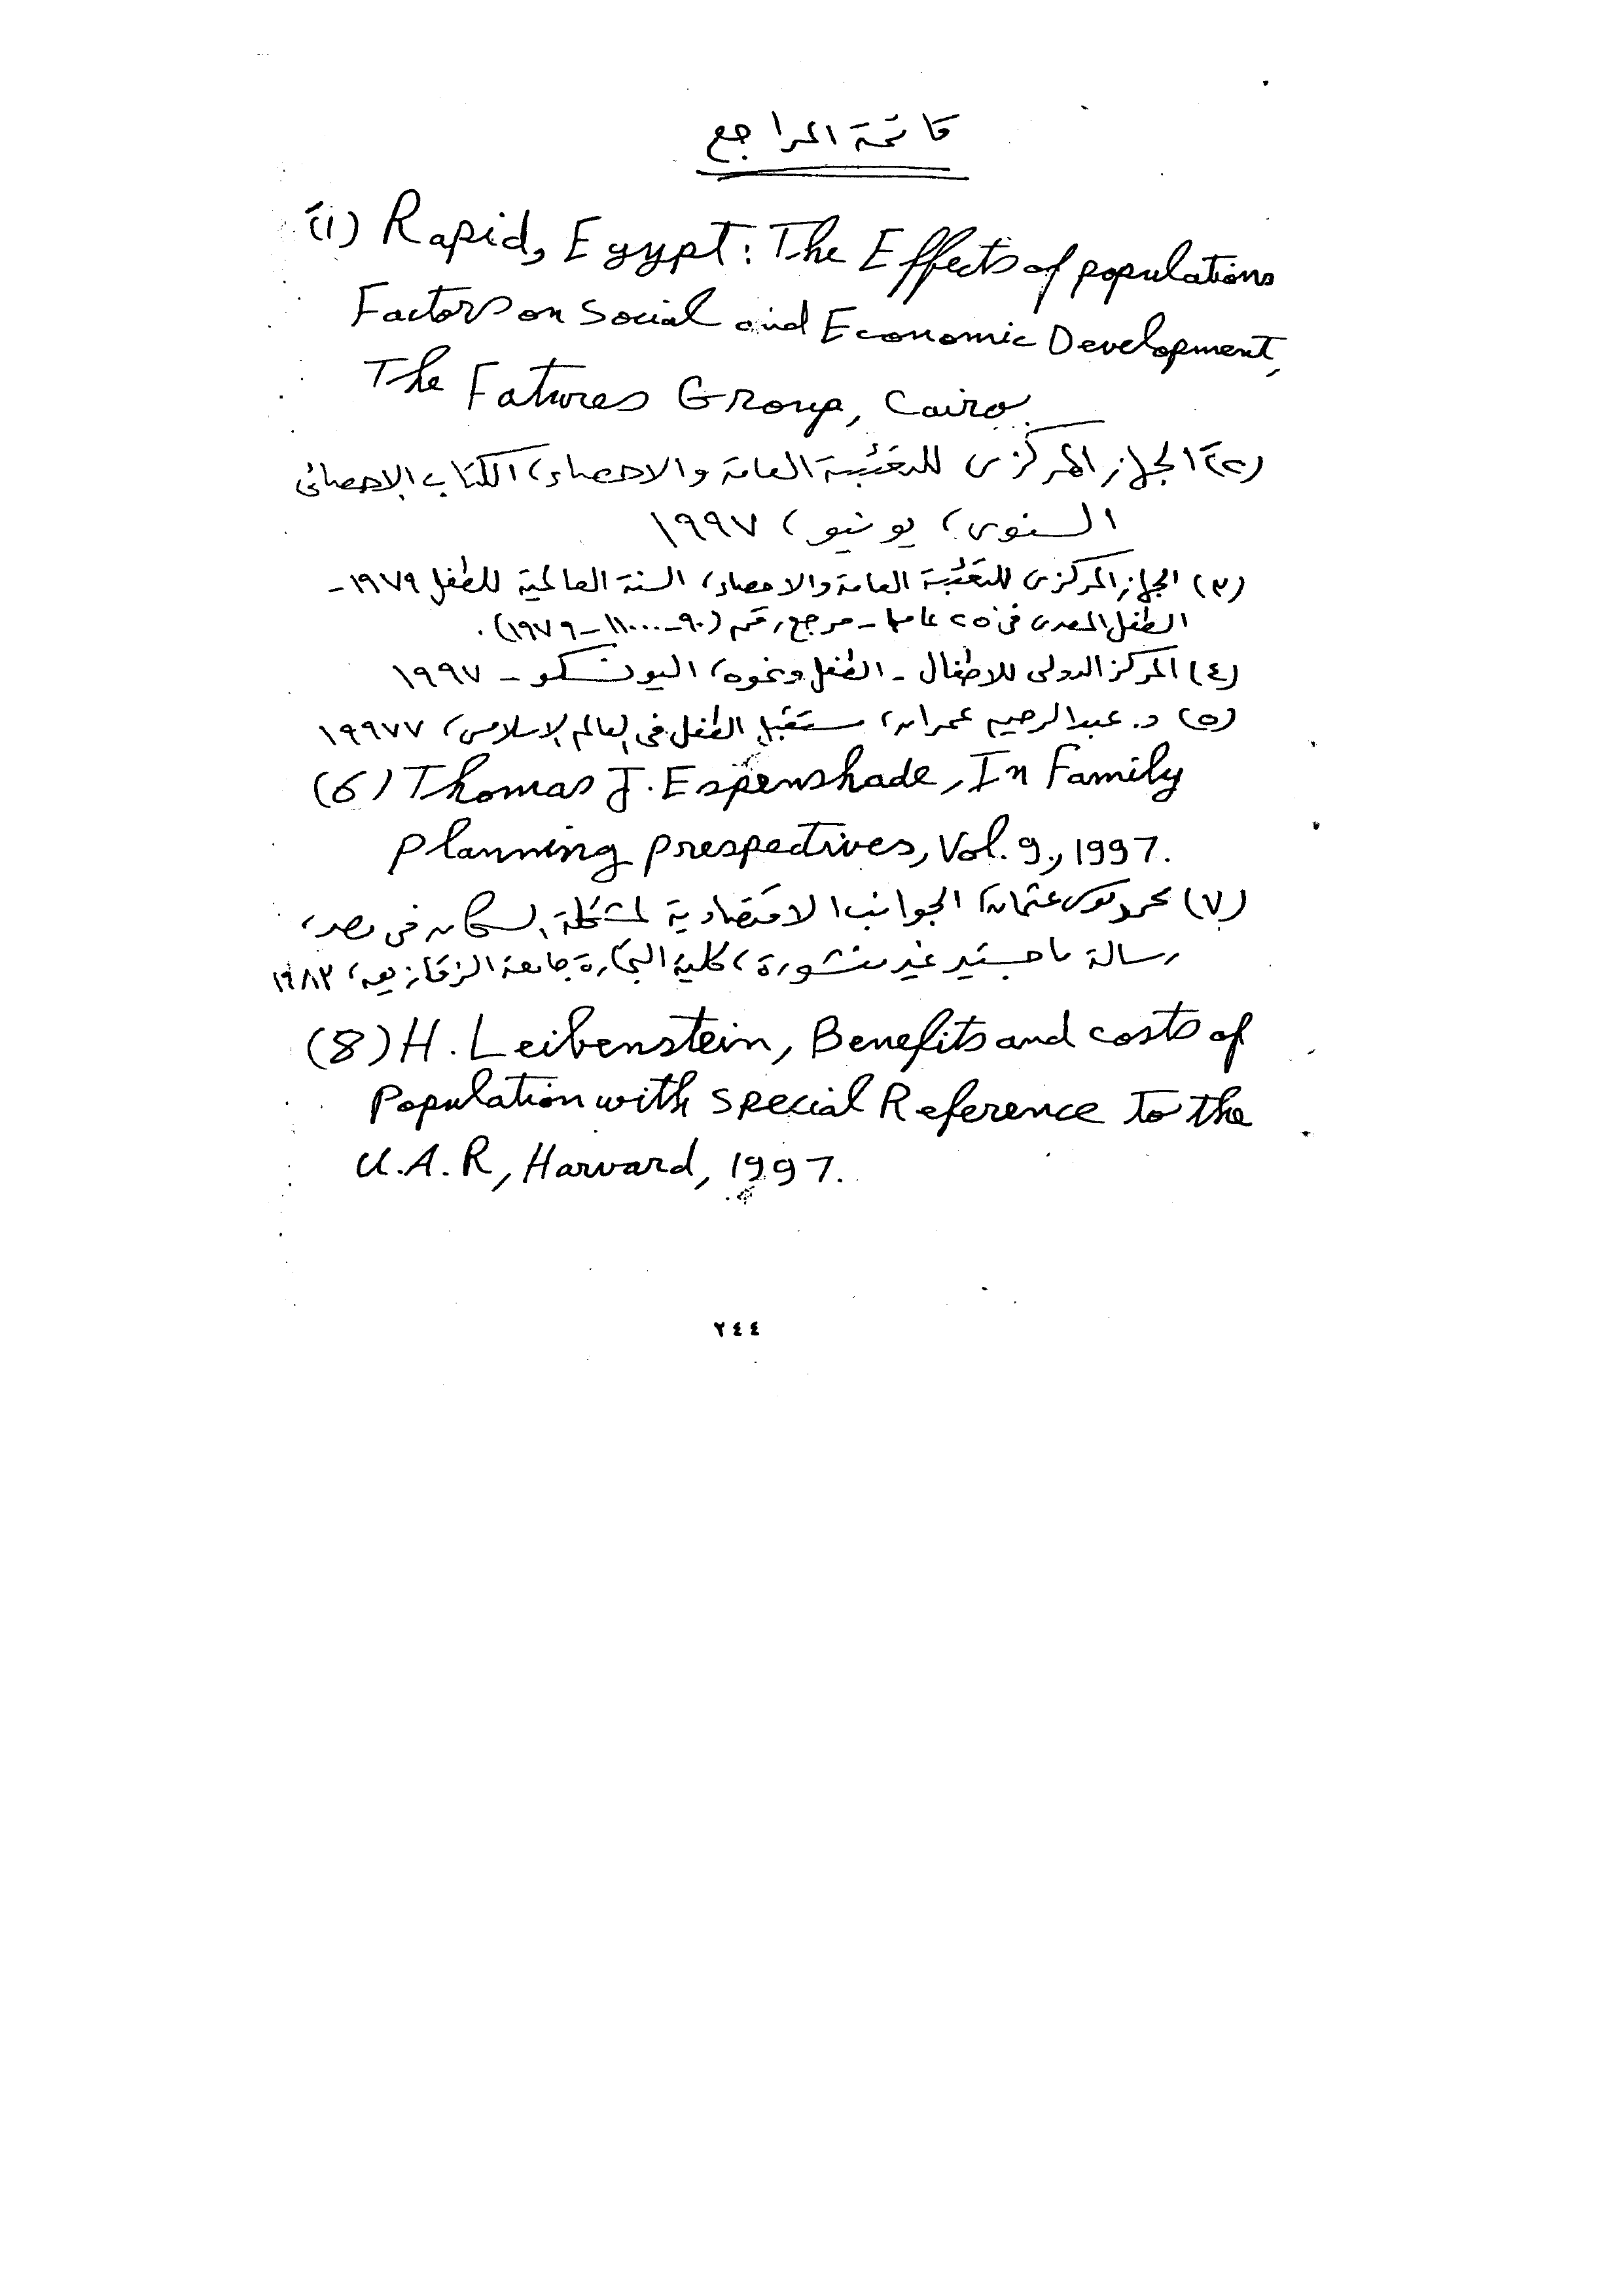 قائمة المراجع
(1) Rapid, Egypt: The Effects of populations
Factors on Social and Economic Development,
The Fatures Group, Cairo.
(٢) الجهاز المركزى للتعبئة العامة والاحصاء، الكتاب الإحصائى
السنوى، يونيو، ١٩٩٧
(٣) الجهاز المركزى للتعبئة العامة والاحصاء، السنة العالمية للطفل ١٩٧٩ -
الطفل المصرى فى ٢٥ عاما - مرجع رقم (٩٠-١١٠٠٠-١٩٧٩).
(٤) المركز الدولى للاطفال - الطفل ونموه، اليونسكو - ١٩٩٧
(٥) د. عبد الرحيم عمران، مستقبل الطفل فى العالم الإسلامى، ١٩٩٧٧
(6) Thomas J. Espenshade, In Family
planning prespectives, Vol. 9, 1997.
(٧) محمد عثمان، الجوانب الاقتصادية لمشكلة السكان فى مصر،
رسالة ماجستير غير منشورة، كلية التجارة جامعة الزقازيق، ١٩٨٣
(8) H. Leibenstein, Benefits and costs of
Population with special Reference To the
U.A.R, Harvard, 1997.
٢٤٤